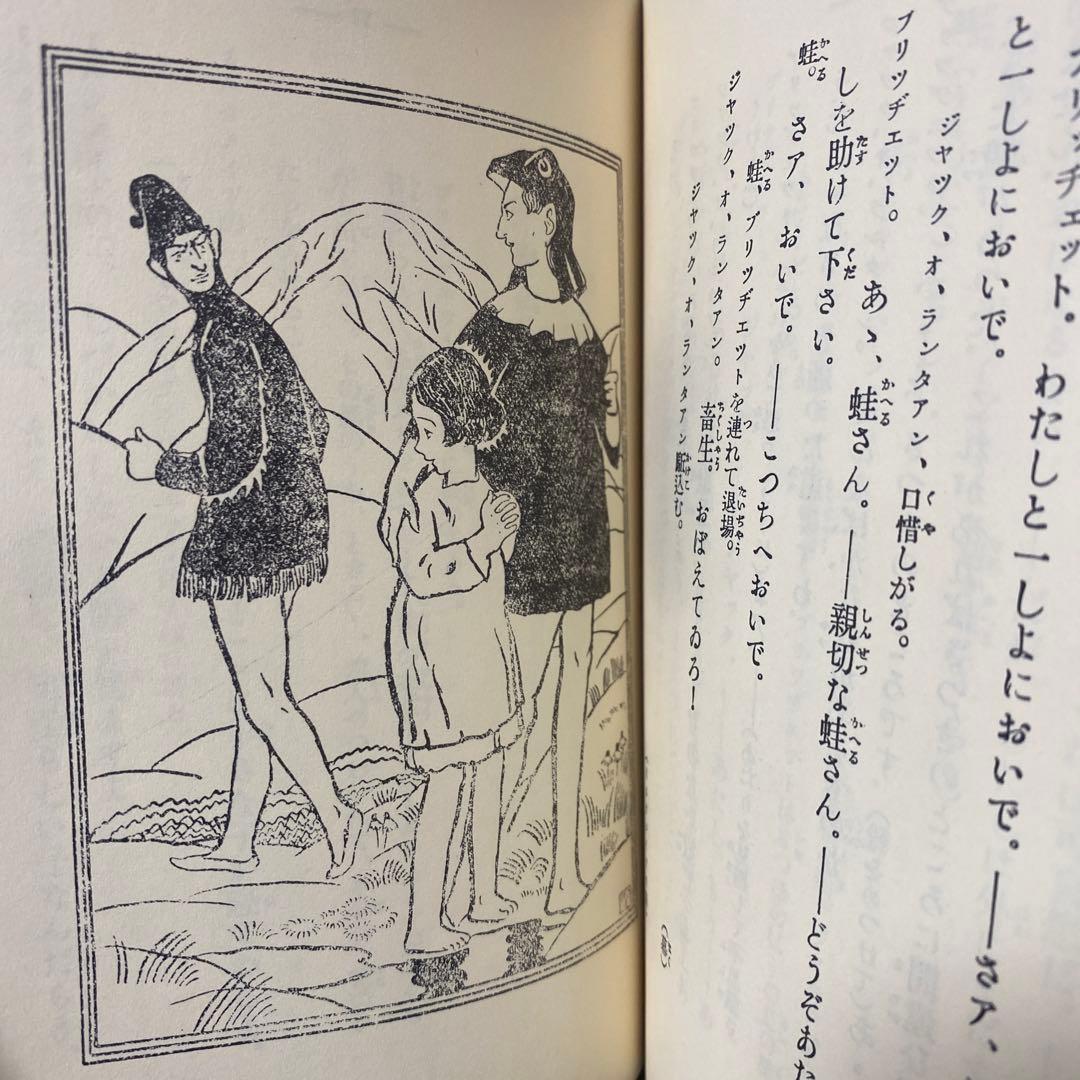 リツヂエツト。 わたしと一しよにおいで。――さア、
と一しよにおいで。
ジヤツク、オ、ランタアン、口惜しがる。
ブリツヂエツト。 あゝ、蛙さん。――親切な蛙さん。――どうぞあた
しを助けて下さい。
蛙。 さア、おいで。――こつちへおいで。
蛙、ブリツヂエツトを連れて退場。
ジヤツク、オ、ランタアン。 畜生。おぼえてゐろ!
ジヤツク、オ、ランタアン駈込む。
(幕)